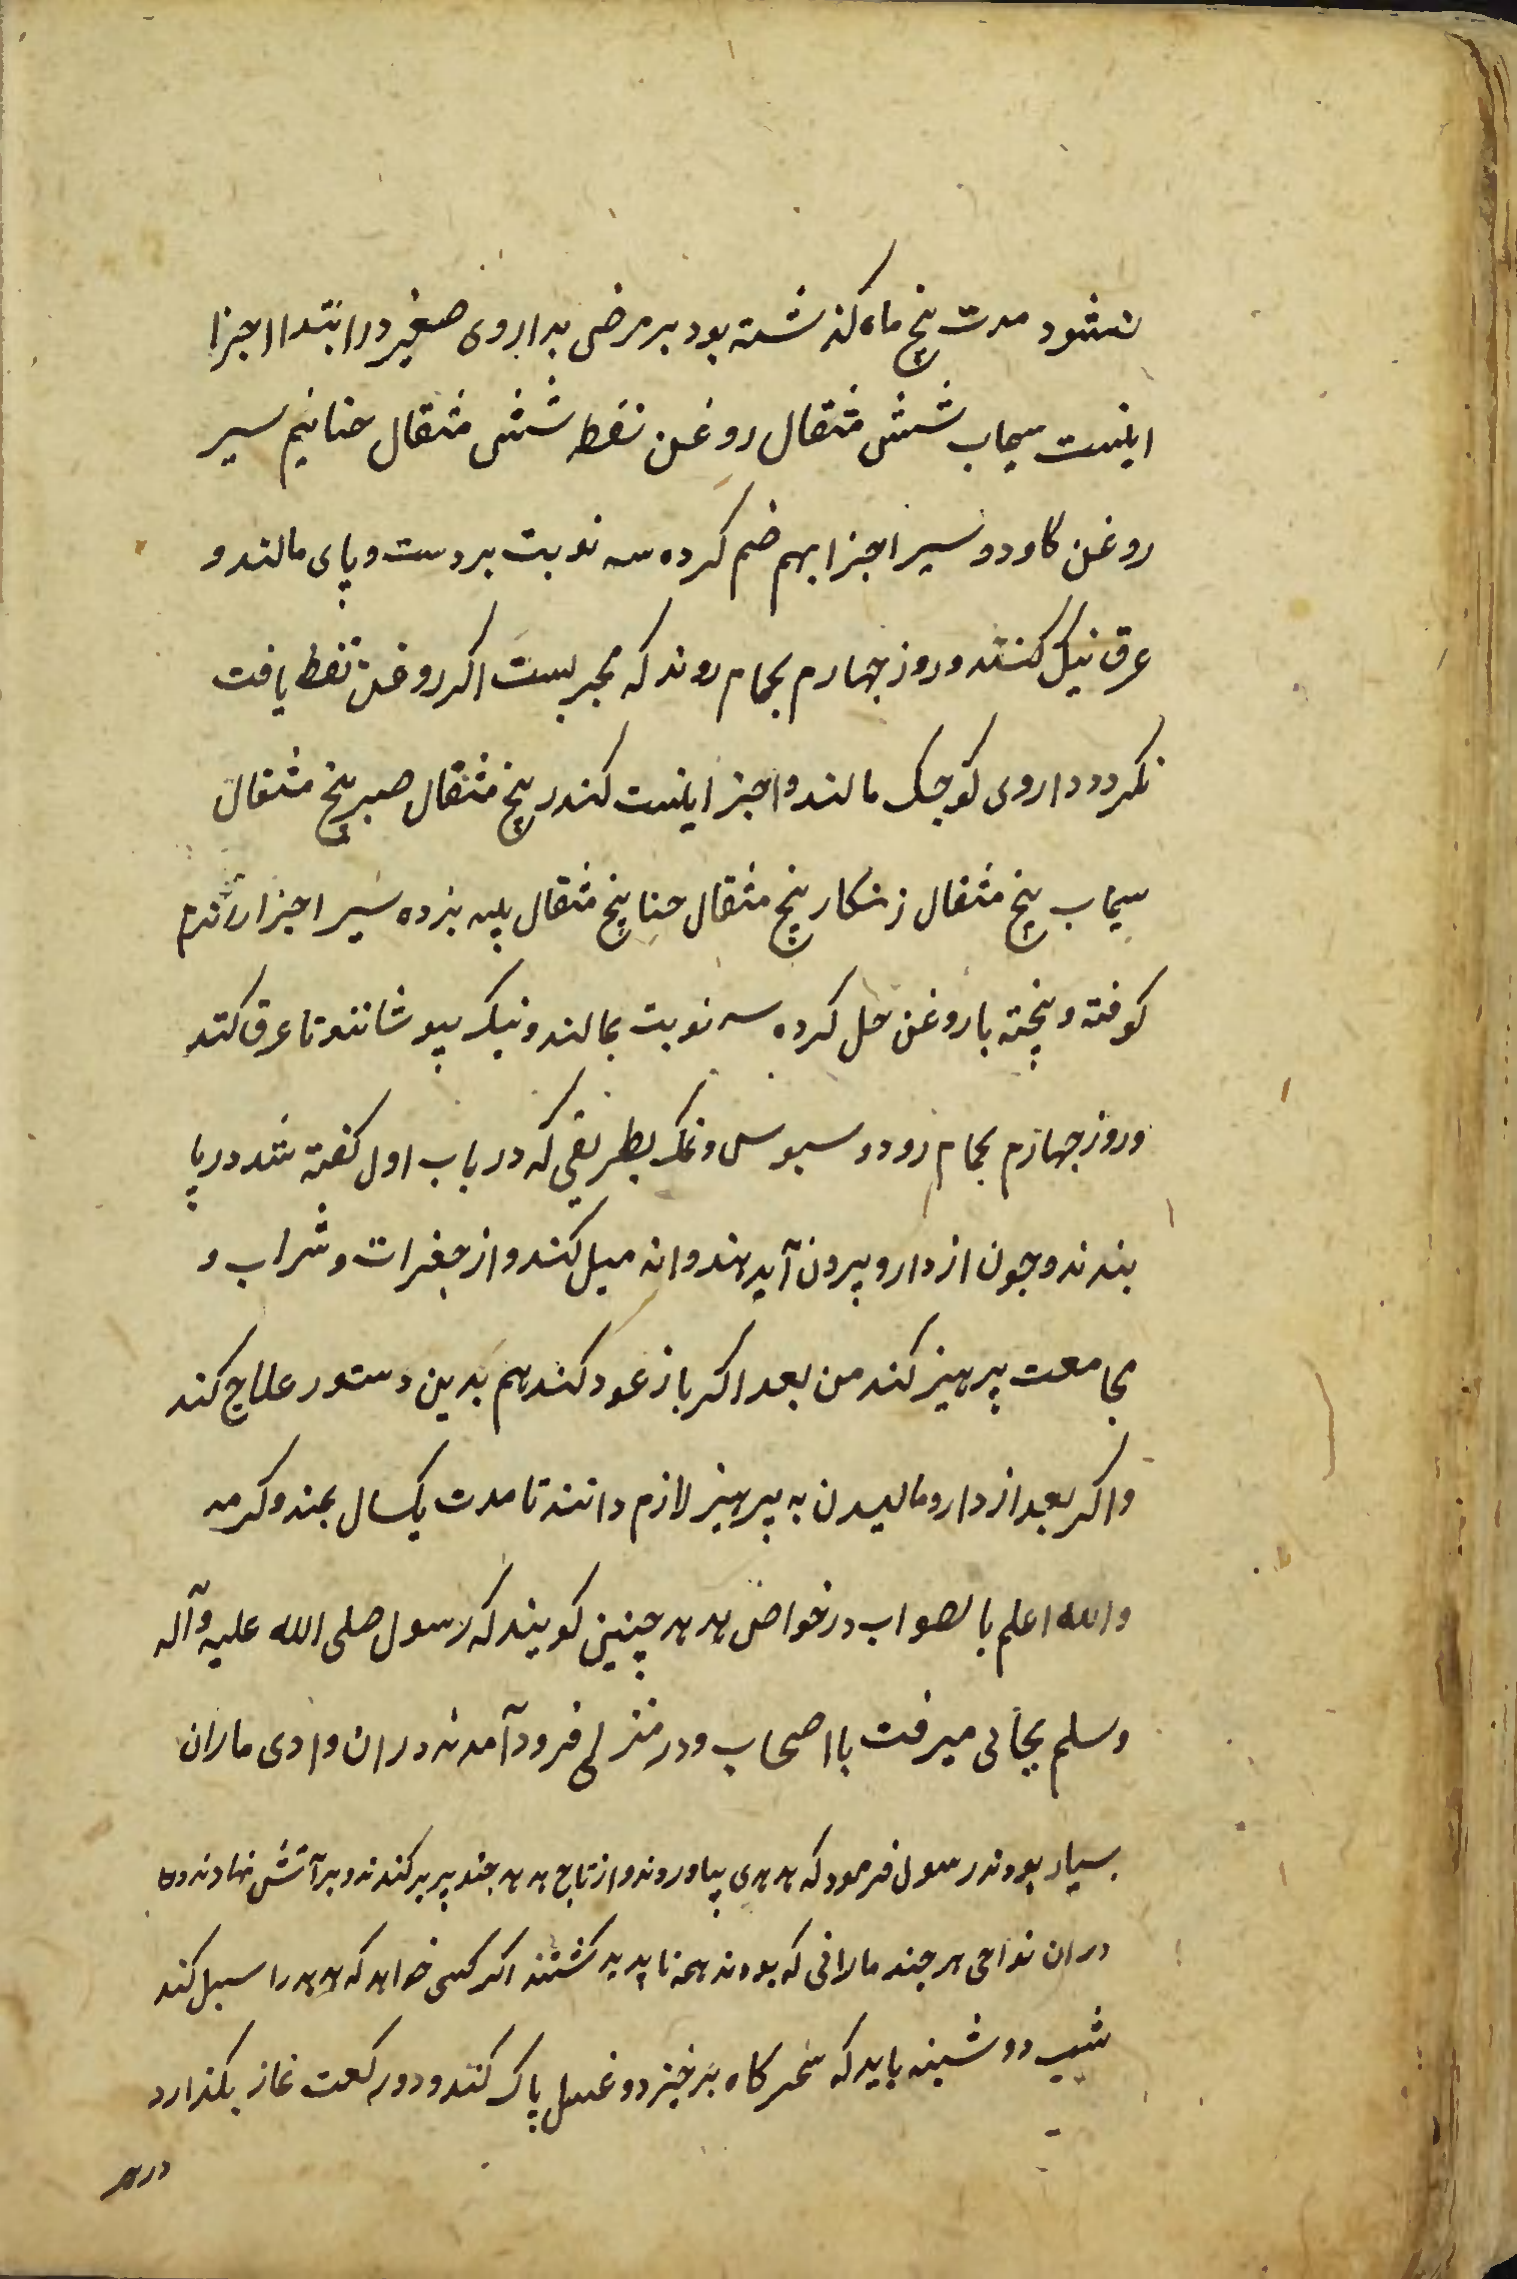 نشود مدت پنج ماه کذشته بود بر مرضی بداروی صغیر در ابتدا اجزا
اینست سیماب شش مثقال روغن نفط شش مثقال حنا نیم سیر
روغن کاو دو سیر اجزا بهم ضم کرده سه نوبت بر دست و پای مالند و
عرق نیک کنند و روز چهارم بحمام روند که مجربست اکر روغن نفط یافت
نکردد داروی کوجک مالند و اجزا اینست کندر پنج مثقال صبر پنج مثقال
سیماب پنج مثقال زنکار پنج مثقال حنا پنج مثقال پیه بز ده سیر اجزا را نرم
کوفته و پخته با روغن حل کرده سه نوبت بمالند و نیک بپوشانند تا عرق کند
و روز چهارم بحمام رود و سبوس و نمک بطریقی که در باب اول کفته شد در پا
بندند و جون از دارو بیرون آید هندوانه میل کند و از جغرات و شراب و
مجامعت پرهیز کند من بعد اکر باز عود کند هم بدین دستور علاج کند
و اکر بعد از دارو مالیدن به پرهیز لازم دانند تا مدت یکسال بمنه و کرمه
والله اعلم بالصواب در خواص هدهد چنین کویند که رسول صلی الله علیه و آله
وسلم بجائی میرفت با اصحاب و در منزلی فرود آمدند در ان وادی ماران
بسیار بودند رسول فرمود که هدهدی بیاوردند و از تاج هدهد جند پر برکندند و بر آتش نهادند
در ان نواحی هر جند مارانی که بودند همه ناپدید کشتند اکر کسی خواهد که هدهد را سبل کند
شب دوشنبه باید که سحرکاه برخیزد و غسل پاک کند و دو رکعت نماز بکذارد
در هر